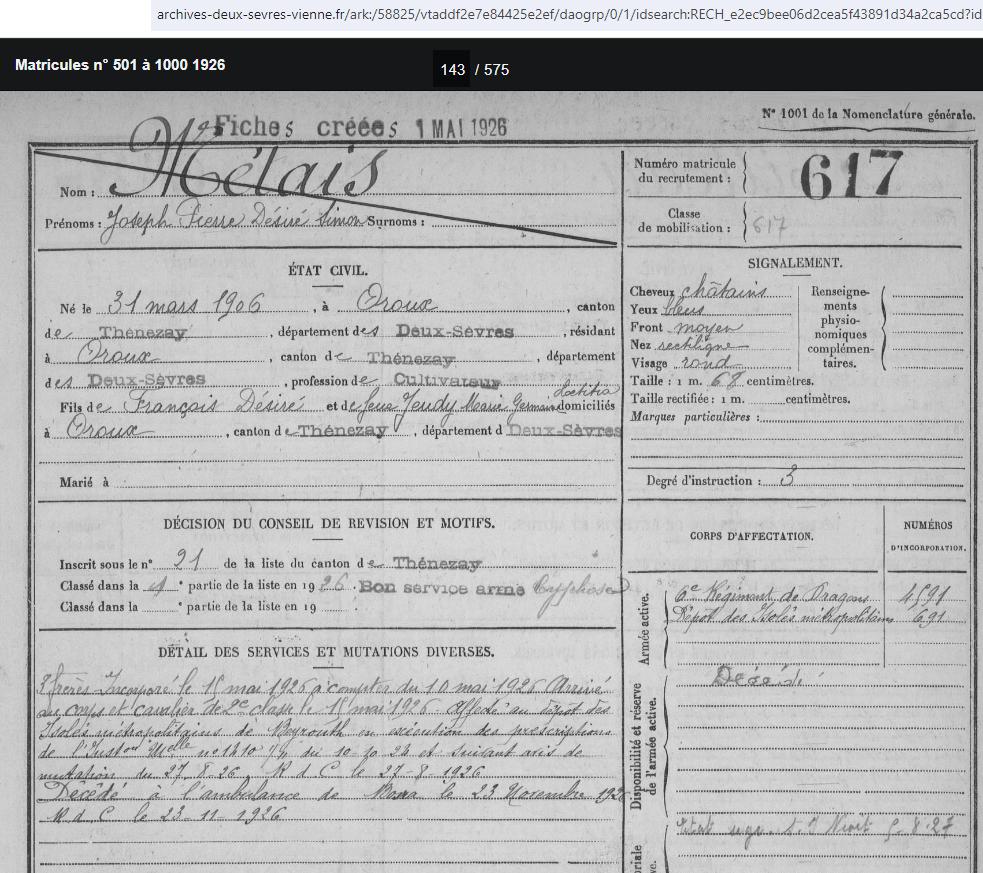 archives-deux-sevres-vienne.fr/ark:/58825/vtaddf2e7e84425e2ef/daogrp/0/1/idsearch:RECH_e2ec9bee06d2cea5f43891d34a2ca5cd?id
Matricules n° 501 à 1000 1926
143 / 575
Fiches créées 1 MAI 1926
N° 1001 de la Nomenclature générale.
Nom : Métais
Prénoms : Joseph Pierre Désiré Simon Surnoms :
Numéro matricule du recrutement : 617
Classe de mobilisation : 617
ÉTAT CIVIL.
Né le 31 mars 1906, à Oroux, canton
de Thénezay, département des Deux-Sèvres, résidant
à Oroux, canton de Thénezay, département
des Deux-Sèvres, profession de Cultivateur
Fils de François Désiré et de feue Jeudy Marie Germaine Laetitia domiciliés
à Oroux, canton de Thénezay, département d Deux-Sèvres
Marié à
SIGNALEMENT.
Cheveux châtains
Yeux bleus
Front moyen
Nez rectiligne
Visage rond
Renseigne-
ments
physio-
nomiques
complémen-
taires.
Taille : 1 m. 68 centimètres.
Taille rectifiée : 1 m. centimètres.
Marques particulières :
Degré d'instruction : 3
DÉCISION DU CONSEIL DE REVISION ET MOTIFS.
Inscrit sous le n° 21 de la liste du canton de Thénezay
Classé dans la partie de la liste en 1926. Bon service armé
Classé dans la ° partie de la liste en 19
CORPS D'AFFECTATION.
NUMÉROS
D'INCORPORATION.
Armée active.
6e Régiment de Dragons 4591
Dépôt des Isolés métropolitains 691
DÉTAIL DES SERVICES ET MUTATIONS DIVERSES.
frères Incorporé le mai 1926 à compter du 10 mai 1926 Arrivé
au corps et cavalier de 2e classe le mai 1926 Affecté au dépôt des
Isolés métropolitains de Beyrouth en exécution des prescriptions
de l'Inston Melle du et suivant avis de
mutation du 27-8-26. R d C le 27-8-1926
Décédé à l'ambulance de le 23 Novembre 1926
R d C le 23-11-1926
Disponibilité et réserve
de l'armée active.
Décédé
Niort